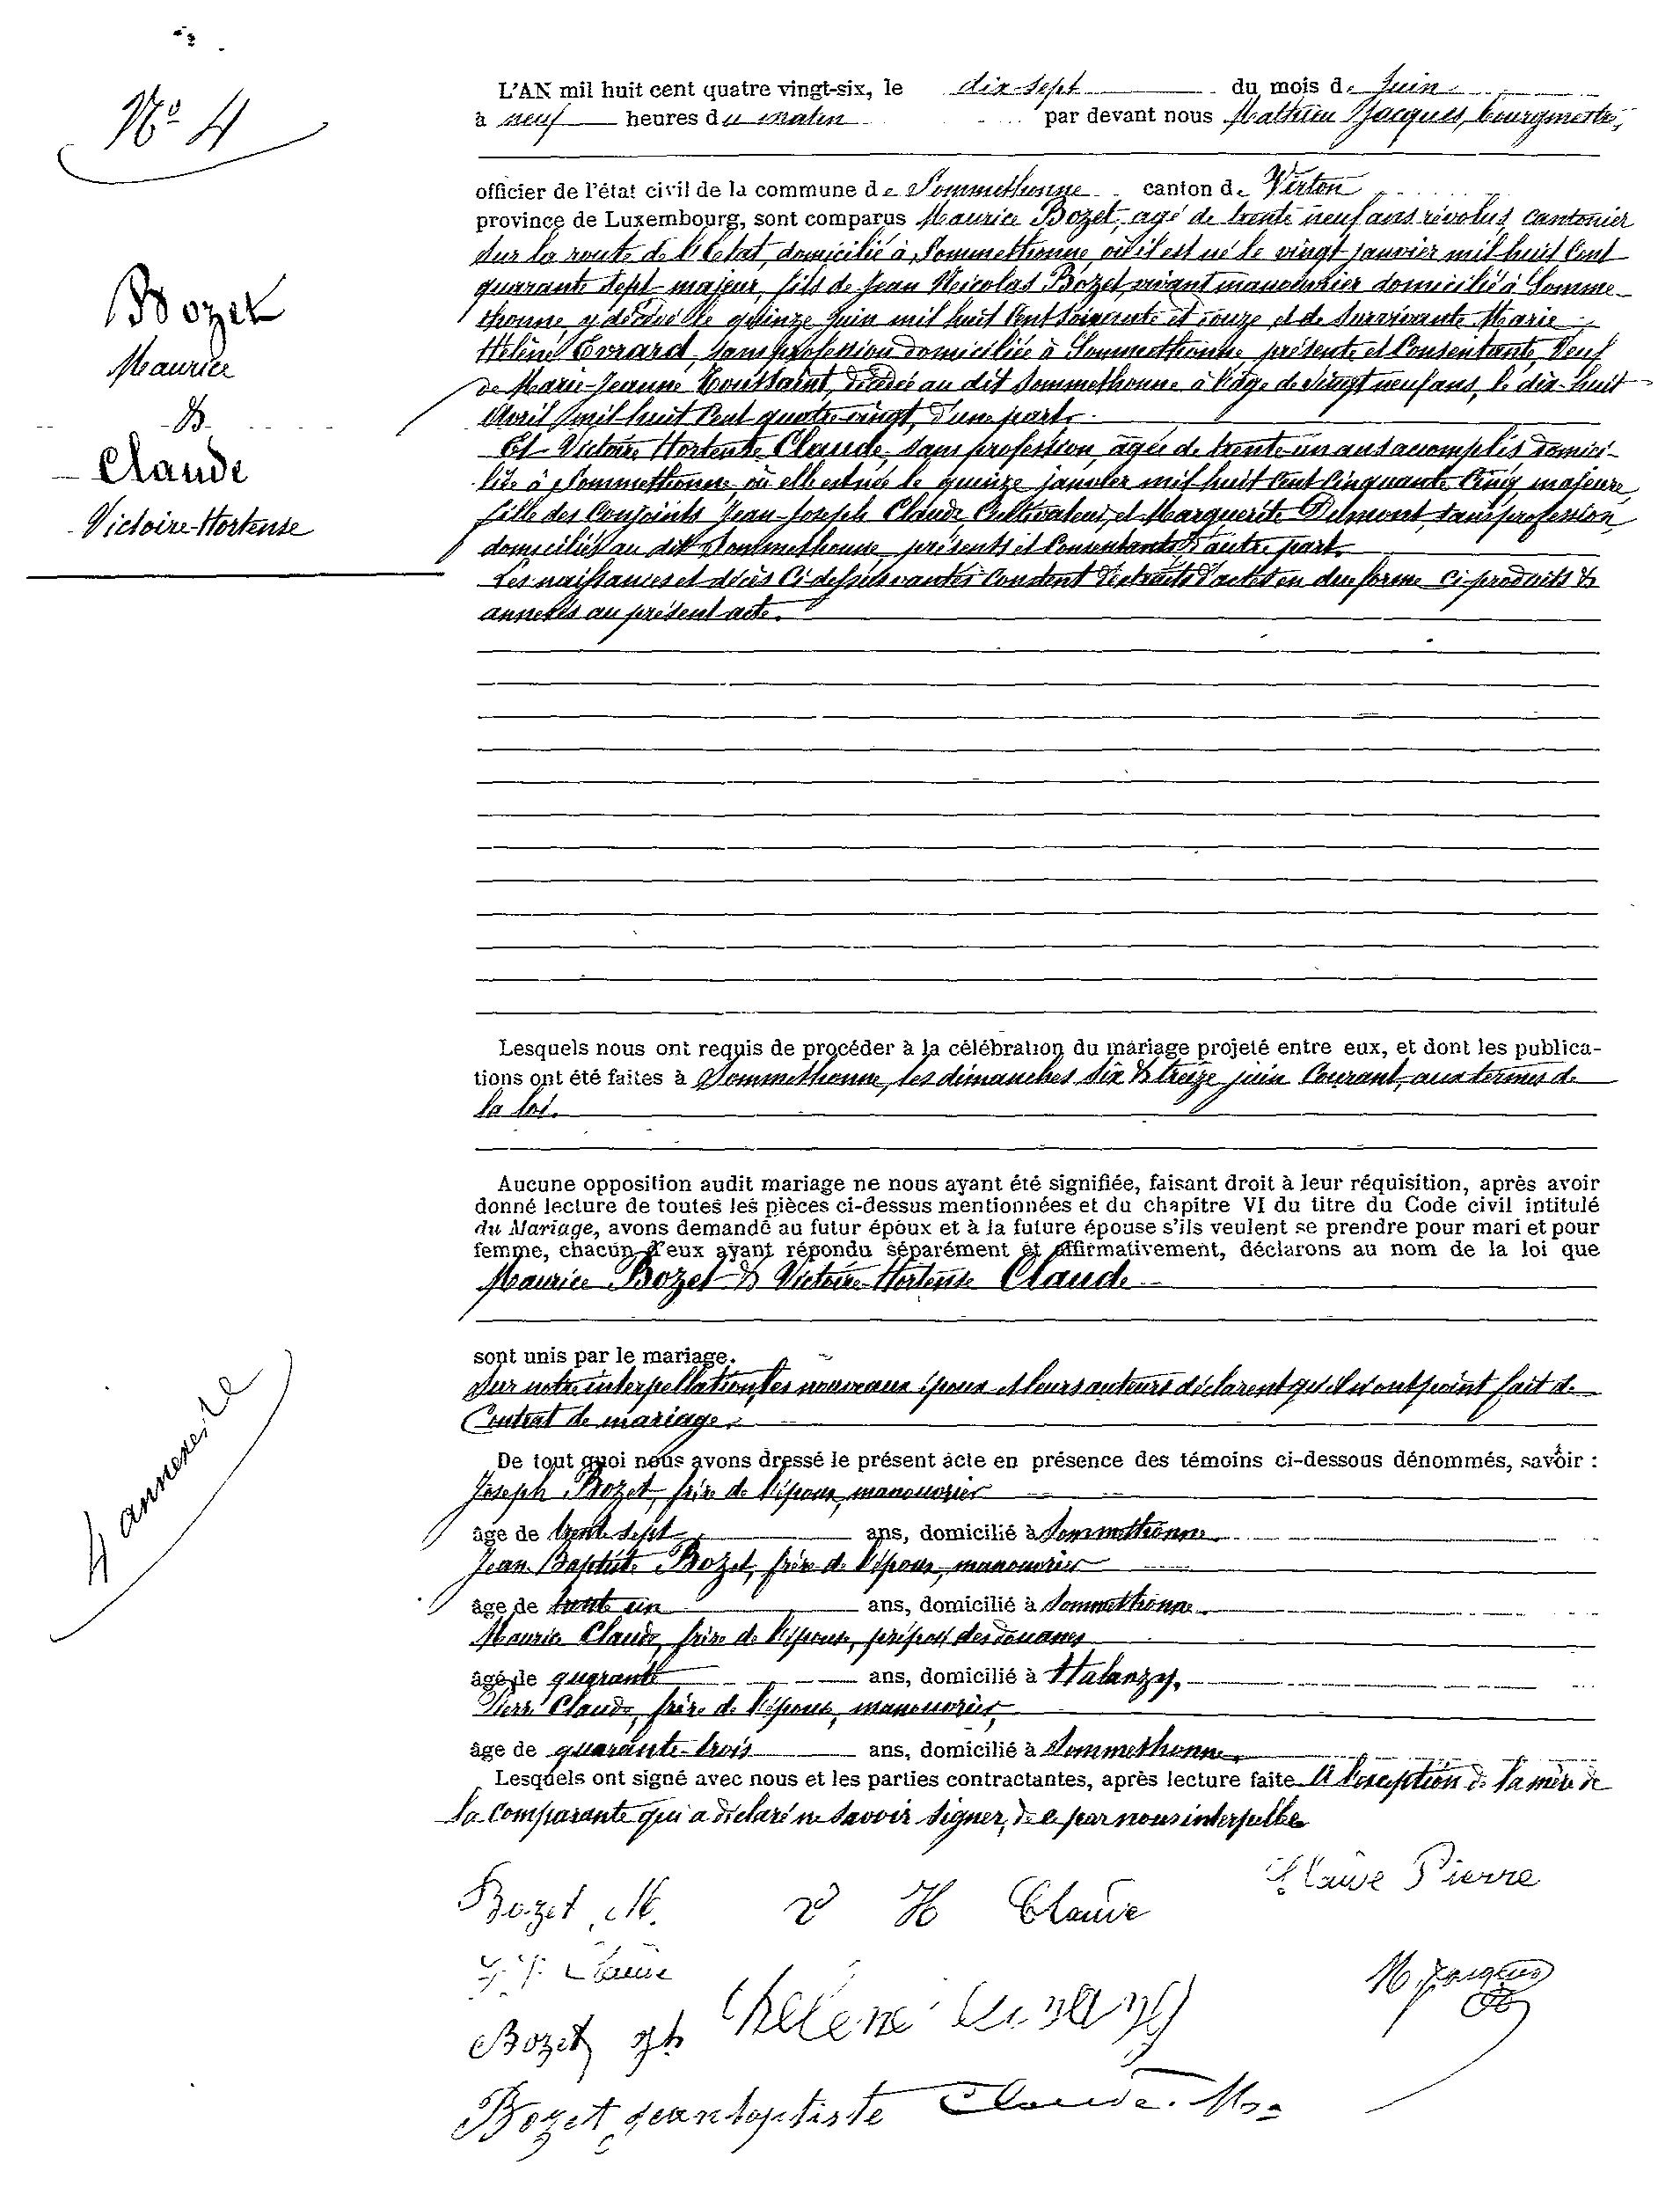 N° 4
Bozet
Maurice
&
Claude
Victoire-Hortense
L'AN mil huit cent quatre vingt-six, le dix-sept du mois de Juin
à neuf heures du matin par devant nous Mathieu Jacques, bourgmestre,
officier de l'état civil de la commune de Sommethonne canton de Virton
province de Luxembourg, sont comparus Maurice Bozet, agé de trente neuf ans révolus, cantonier
sur la route de l'Etat, domicilié à Sommethonne, où il est né le vingt janvier mil huit cent
quarante sept majeur, fils de Jean Nicolas Bozet, vivant manouvrier domicilié à Somme-
thonne y décédé le quinze Juin mil huit cent soixante et onze et de survivante Marie
Hélène Evrard, sans profession domiciliée à Sommethonne présente et consentante, Veuf
de Marie-Jeanne Toussaint, décédée au dit Sommethonne à l'âge de vingt neuf ans, le dix-huit
Avril mil huit cent quatre-vingt, d'une part.
Et Victoire Hortense Claude sans profession, agée de trente-un ans accomplis domici-
liée à Sommethonne où elle est née le quinze janvier mil huit cent cinquante cinq, majeure,
fille des conjoints Jean-Joseph Claude, Cultivateur, et Marguerite Delmont, sans profession,
domiciliés au dit Sommethonne présents et consentants d'autre part.
Les naissances et décès ci-dessus constent d'extraits d'actes en due forme ci-produits &
annexés au présent acte.
Lesquels nous ont requis de procéder à la célébration du mariage projeté entre eux, et dont les publica-
tions ont été faites à Sommethonne, les dimanches six & treize juin courant, aux termes de
la loi.
Aucune opposition audit mariage ne nous ayant été signifiée, faisant droit à leur réquisition, après avoir
donné lecture de toutes les pièces ci-dessus mentionnées et du chapitre VI du titre du Code civil intitulé
du Mariage, avons demandé au futur époux et à la future épouse s'ils veulent se prendre pour mari et pour
femme, chacun d'eux ayant répondu séparément et affirmativement, déclarons au nom de la loi que
Maurice Bozet & Victoire-Hortense Claude
sont unis par le mariage.
Sur notre interpellation, les nouveaux époux et leurs auteurs déclarent qu'il n'ont point fait de
Contrat de mariage.
4 annexes
De tout quoi nous avons dressé le présent acte en présence des témoins ci-dessous dénommés, savoir :
Joseph Bozet, frère de l'époux, manouvrier
âgé de trente sept ans, domicilié à Sommethonne
Jean Baptiste Bozet, frère de l'époux, manouvrier
âgé de trente un ans, domicilié à Sommethonne
Maurice Claude, frère de l'épouse, préposé des douanes
âgé de quarante ans, domicilié à Halanzy.
Pierre Claude, frère de l'épouse, manouvrier,
âgé de quarante-trois ans, domicilié à Sommethonne.
Lesquels ont signé avec nous et les parties contractantes, après lecture faite à l'exception de la mère de
la comparante qui a déclaré ne savoir signer, de ce par nous interpellée
Bozet M. V H Claude Claude Pierre
J. J. Claude M. Jacques
Bozet Jph hélène
Bozet jean baptiste Claude. M